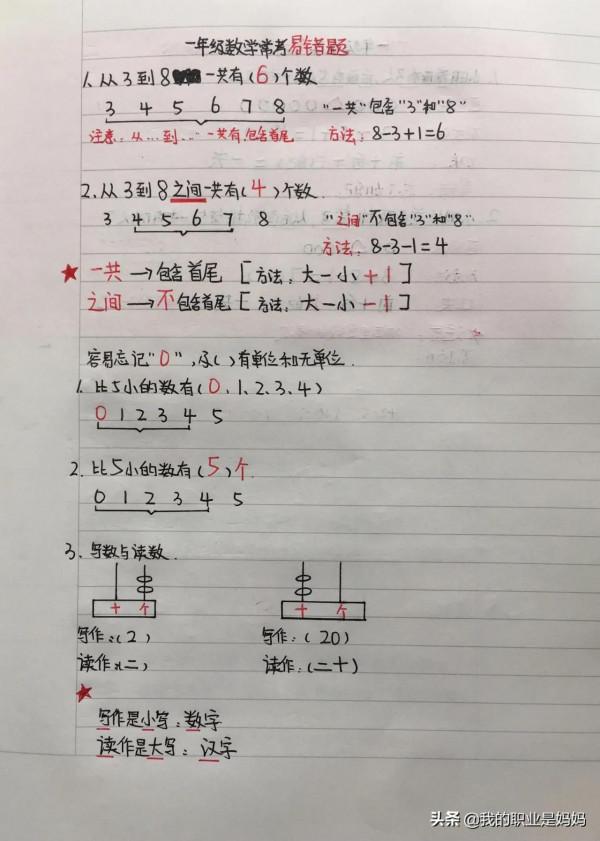 一年级数学常考易错题
1、从3到8一共有(6)个数
3 4 5 6 7 8 "一共"包含"3"和"8"
注意：从…到…一共有,包含首尾 方法：8-3+1=6
2.从3到8之间一共有(4)个数.
3 4 5 6 7 8 "之间"不包含"3"和"8"
方法：8-3-1=4
★ 一共→包含首尾[方法：大-小+1]
之间→不包含首尾[方法：大-小-1]
容易忘记"0",及( )有单位和无单位.
1. 比5小的数有(0、1、2、3、4)
0 1 2 3 4 5
2. 比5小的数有(5)个.
0 1 2 3 4 5
3、写数与读数.
十 个 十 个
写作:(2) 写作:(20)
读作:(二) 读作:(二十)
★
写作是小写：数字
读作是大写：汉字
头条 @我的职业是妈妈